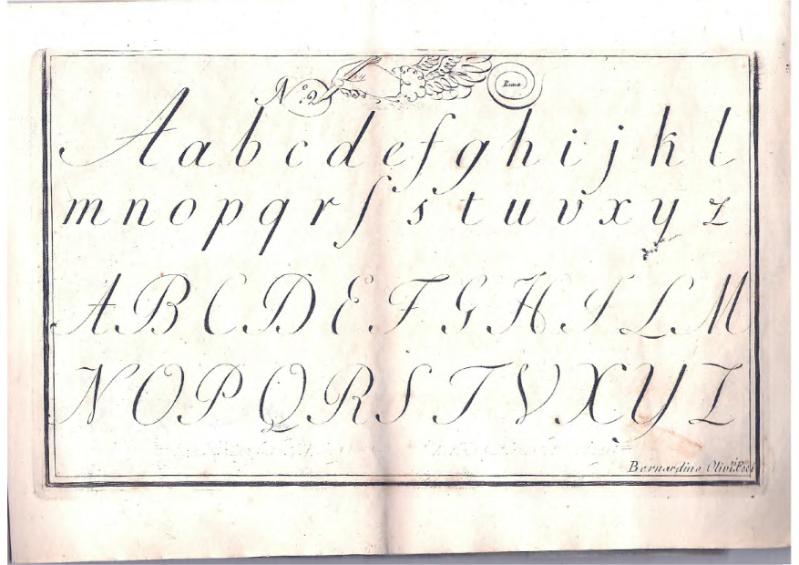 Roma
A a b c d e f g h i j k l
m n o p q r ſ s t u v x y z
A B C D E F G H I L M
N O P Q R S T V X Y Z
Bernardino